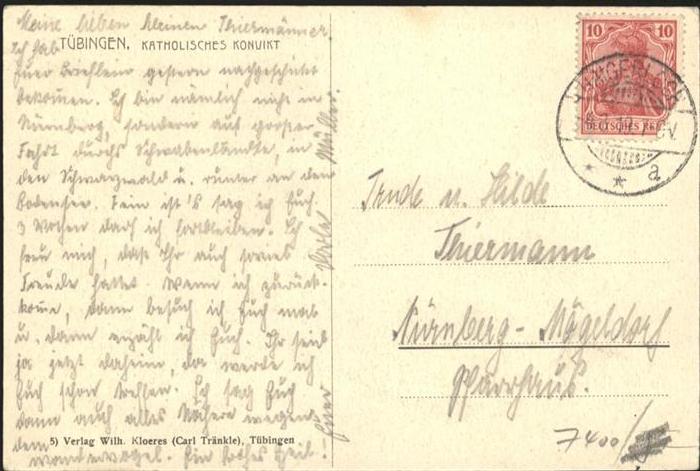 Meine lieben kleinen Thiermänner.
Ich hab
TÜBINGEN, KATHOLISCHES KONVIKT
Euer Brieflein gestern nachgeschickt
bekommen. Ich bin nämlich nicht in
Nürnberg, sondern auf großer
Fahrt durchs Schwabenländle, in
den Schwarzwald u. runter an den
Bodensee. Fein ist's sag ich Euch.
3 Wochen darf ich fortbleiben. Ich
freu mich, daß Ihr auch soviel
Freude hattet. Wenn ich zurück-
komme, dann besuch ich Euch mal
u. dann erzähl ich Euch. Ihr seid
ja jetzt daheim, da werde ich
Euch schon treffen. Ich sag Euch
dann auch alles Nähere wegen
dem Wandervogel. Ein frohes Heil!
Euer Müller.
5) Verlag Wilh. Kloeres (Carl Tränkle), Tübingen
10 10
DEUTSCHES REICH
a
Trude u. Hilde
Thiermann
Nürnberg-Mögeldorf
Pfarrhaus.
7400/